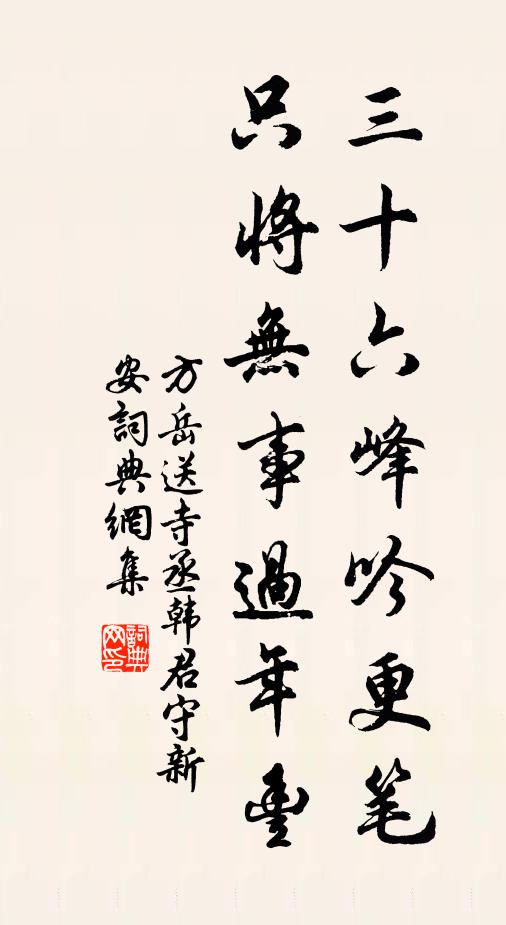 三十六峰吟更笔
只將無事過年豐
方岳送寺丞韩君守新
安詞典網集
詞典网印